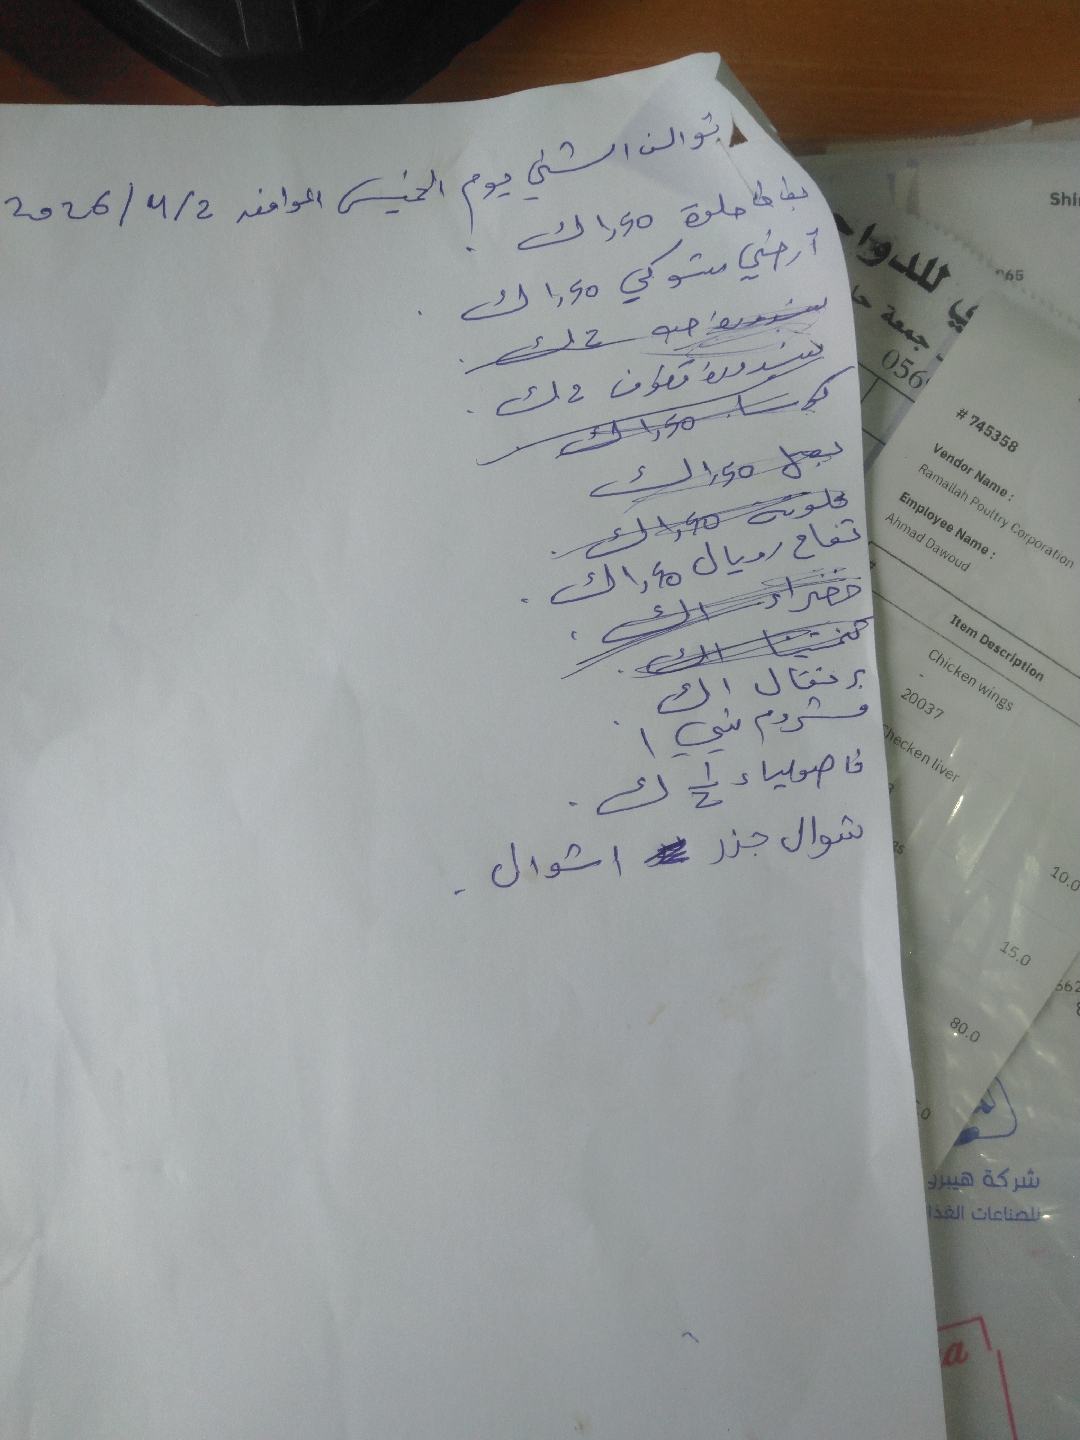 توالف الشني يوم الخميس الموافق 2026/4/2
بطاطا حلوة 1,50 ك.
أرضي شوكي 1,50 ك.
بندورة حبه 2 ك.
بندورة قطوف 2 ك.
كوسا 1,50 ك
بصل 1,50 ك
1,50 ك.
تفاح رويال 1,50 ك.
خضراء 1 ك.
1 ك.
برتقال 1 ك.
مشروم بني 1
فاصولياء 1/2 ك.
شوال جزر 1 شوال.
ي للدوا
جمعة حا
056
Shi
065
# 745358
Vendor Name :
Ramallah Poultry Corporation
Employee Name :
Ahmad Dawoud
Item Description
Chicken wings
20037
Checken liver
10.0
15.0
80.0
شركة هيبر
للصناعات الغذا